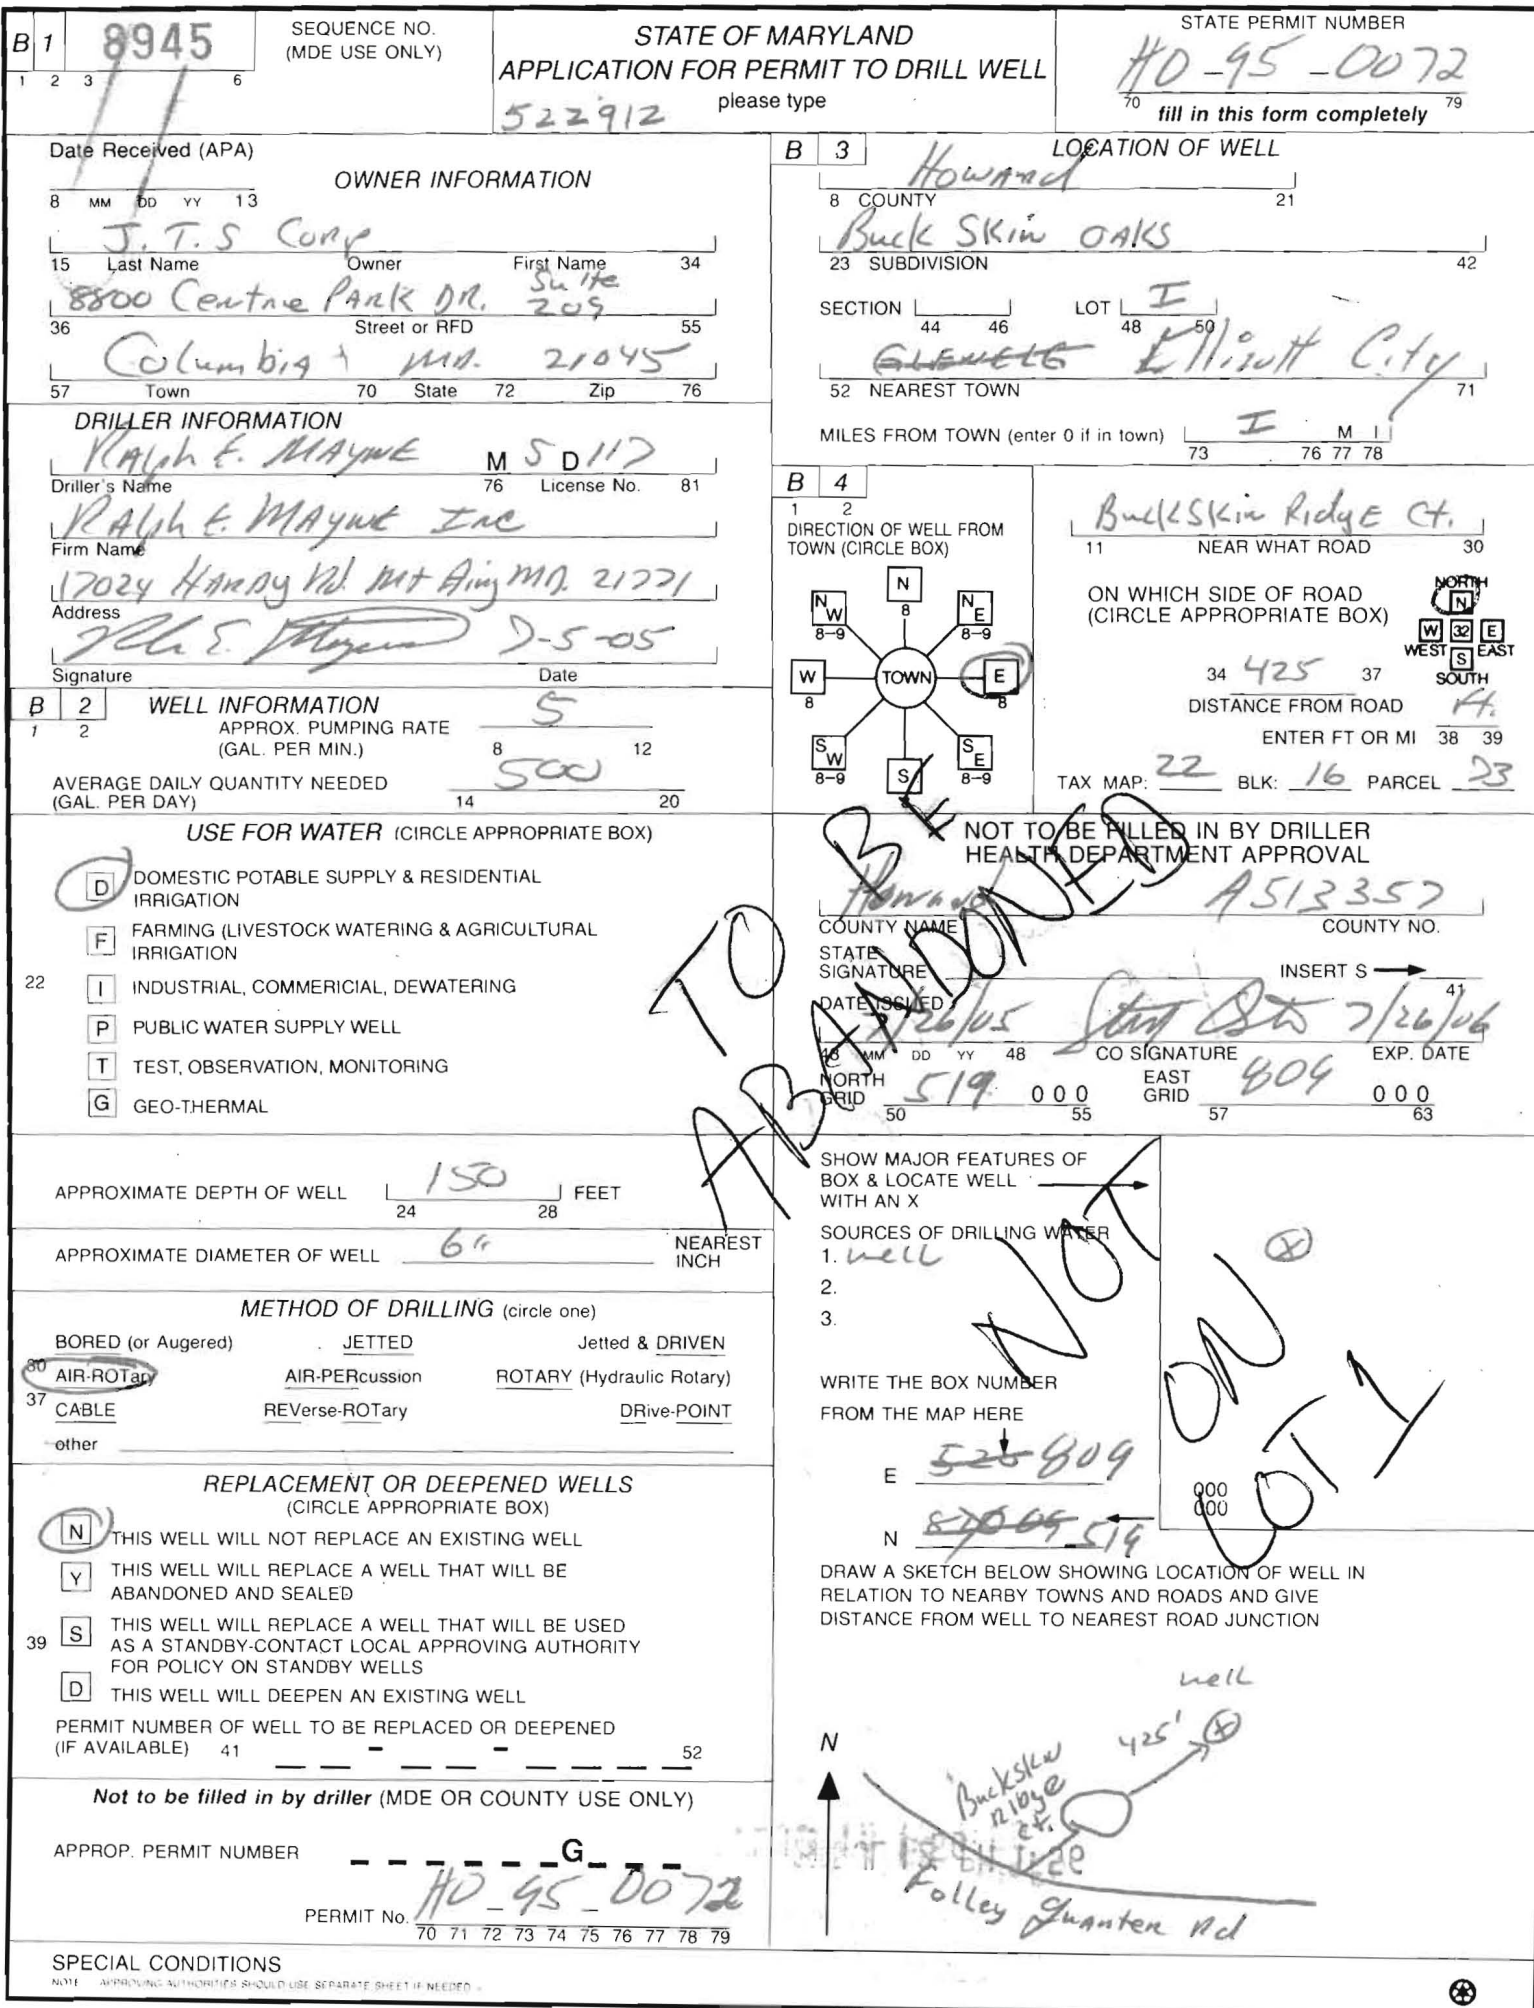 B 1 8945 SEQUENCE NO. (MDE USE ONLY)
1 2 3 6
STATE OF MARYLAND
APPLICATION FOR PERMIT TO DRILL WELL
please type
522912
STATE PERMIT NUMBER
HO-95-0072
70 79
fill in this form completely
Date Received (APA)
8 MM DD YY 13
OWNER INFORMATION
J.T.S Corp
15 Last Name Owner First Name 34
8800 Centre PARK DR. Suite 209
36 Street or RFD 55
Columbia MD. 21045
57 Town 70 State 72 Zip 76
DRILLER INFORMATION
RALph E. MAYNE M S D 117
Driller's Name 76 License No. 81
RALph E. MAYNE Inc
Firm Name
17024 HARDy Rd. Mt Airy MD. 21771
Address
7-5-05
Signature Date
B 2 WELL INFORMATION
1 2
APPROX. PUMPING RATE (GAL. PER MIN.) 5
8 12
AVERAGE DAILY QUANTITY NEEDED (GAL. PER DAY) 500
14 20
USE FOR WATER (CIRCLE APPROPRIATE BOX)
D DOMESTIC POTABLE SUPPLY & RESIDENTIAL
IRRIGATION
F FARMING (LIVESTOCK WATERING & AGRICULTURAL
IRRIGATION
22 I INDUSTRIAL, COMMERICIAL, DEWATERING
P PUBLIC WATER SUPPLY WELL
T TEST, OBSERVATION, MONITORING
G GEO-THERMAL
APPROXIMATE DEPTH OF WELL 150 FEET
24 28
APPROXIMATE DIAMETER OF WELL 6" NEAREST INCH
METHOD OF DRILLING (circle one)
BORED (or Augered) JETTED Jetted & DRIVEN
30 AIR-ROTary AIR-PERcussion ROTARY (Hydraulic Rotary)
37 CABLE REVerse-ROTary DRive-POINT
other
REPLACEMENT OR DEEPENED WELLS
(CIRCLE APPROPRIATE BOX)
N THIS WELL WILL NOT REPLACE AN EXISTING WELL
Y THIS WELL WILL REPLACE A WELL THAT WILL BE
ABANDONED AND SEALED
39 S THIS WELL WILL REPLACE A WELL THAT WILL BE USED
AS A STANDBY-CONTACT LOCAL APPROVING AUTHORITY
FOR POLICY ON STANDBY WELLS
D THIS WELL WILL DEEPEN AN EXISTING WELL
PERMIT NUMBER OF WELL TO BE REPLACED OR DEEPENED
(IF AVAILABLE) 41 - - 52
Not to be filled in by driller (MDE OR COUNTY USE ONLY)
APPROP. PERMIT NUMBER G
PERMIT No. HO-95-0072
70 71 72 73 74 75 76 77 78 79
SPECIAL CONDITIONS
NOTE APPROVING AUTHORITIES SHOULD USE SEPARATE SHEET IF NEEDED
B 3 LOCATION OF WELL
Howard
8 COUNTY 21
Buck SKin OAKS
23 SUBDIVISION 42
SECTION LOT I
44 46 48 50
GLENELG Ellicott City
52 NEAREST TOWN 71
MILES FROM TOWN (enter 0 if in town) I M I
73 76 77 78
B 4
1 2
DIRECTION OF WELL FROM
TOWN (CIRCLE BOX)
N
8
NW NE
8-9 8-9
W TOWN E
8 8
SW SE
8-9 8-9
S
BuckSkin RidgE Ct.
11 NEAR WHAT ROAD 30
ON WHICH SIDE OF ROAD
(CIRCLE APPROPRIATE BOX)
NORTH
N
W 32 E
WEST S EAST
SOUTH
34 425 37
DISTANCE FROM ROAD ft.
ENTER FT OR MI 38 39
TAX MAP: 22 BLK: 16 PARCEL 23
NOT TO BE FILLED IN BY DRILLER
HEALTH DEPARTMENT APPROVAL
Howard A513357
COUNTY NAME COUNTY NO.
STATE
SIGNATURE INSERT S
41
DATE ISSUED
7/26/05 7/26/06
43 MM DD YY 48 CO SIGNATURE EXP. DATE
NORTH GRID 519 000 EAST GRID 809 000
50 55 57 63
TO BE
ABANDONED
SHOW MAJOR FEATURES OF
BOX & LOCATE WELL
WITH AN X
SOURCES OF DRILLING WATER
1. well
2.
3.
NOT
ON
LOT 1
X
WRITE THE BOX NUMBER
FROM THE MAP HERE
E 526 809
N 519
000
000
DRAW A SKETCH BELOW SHOWING LOCATION OF WELL IN
RELATION TO NEARBY TOWNS AND ROADS AND GIVE
DISTANCE FROM WELL TO NEAREST ROAD JUNCTION
well
N
425' X
Buckskin
Ridge
ct.
Folley Quarter Rd